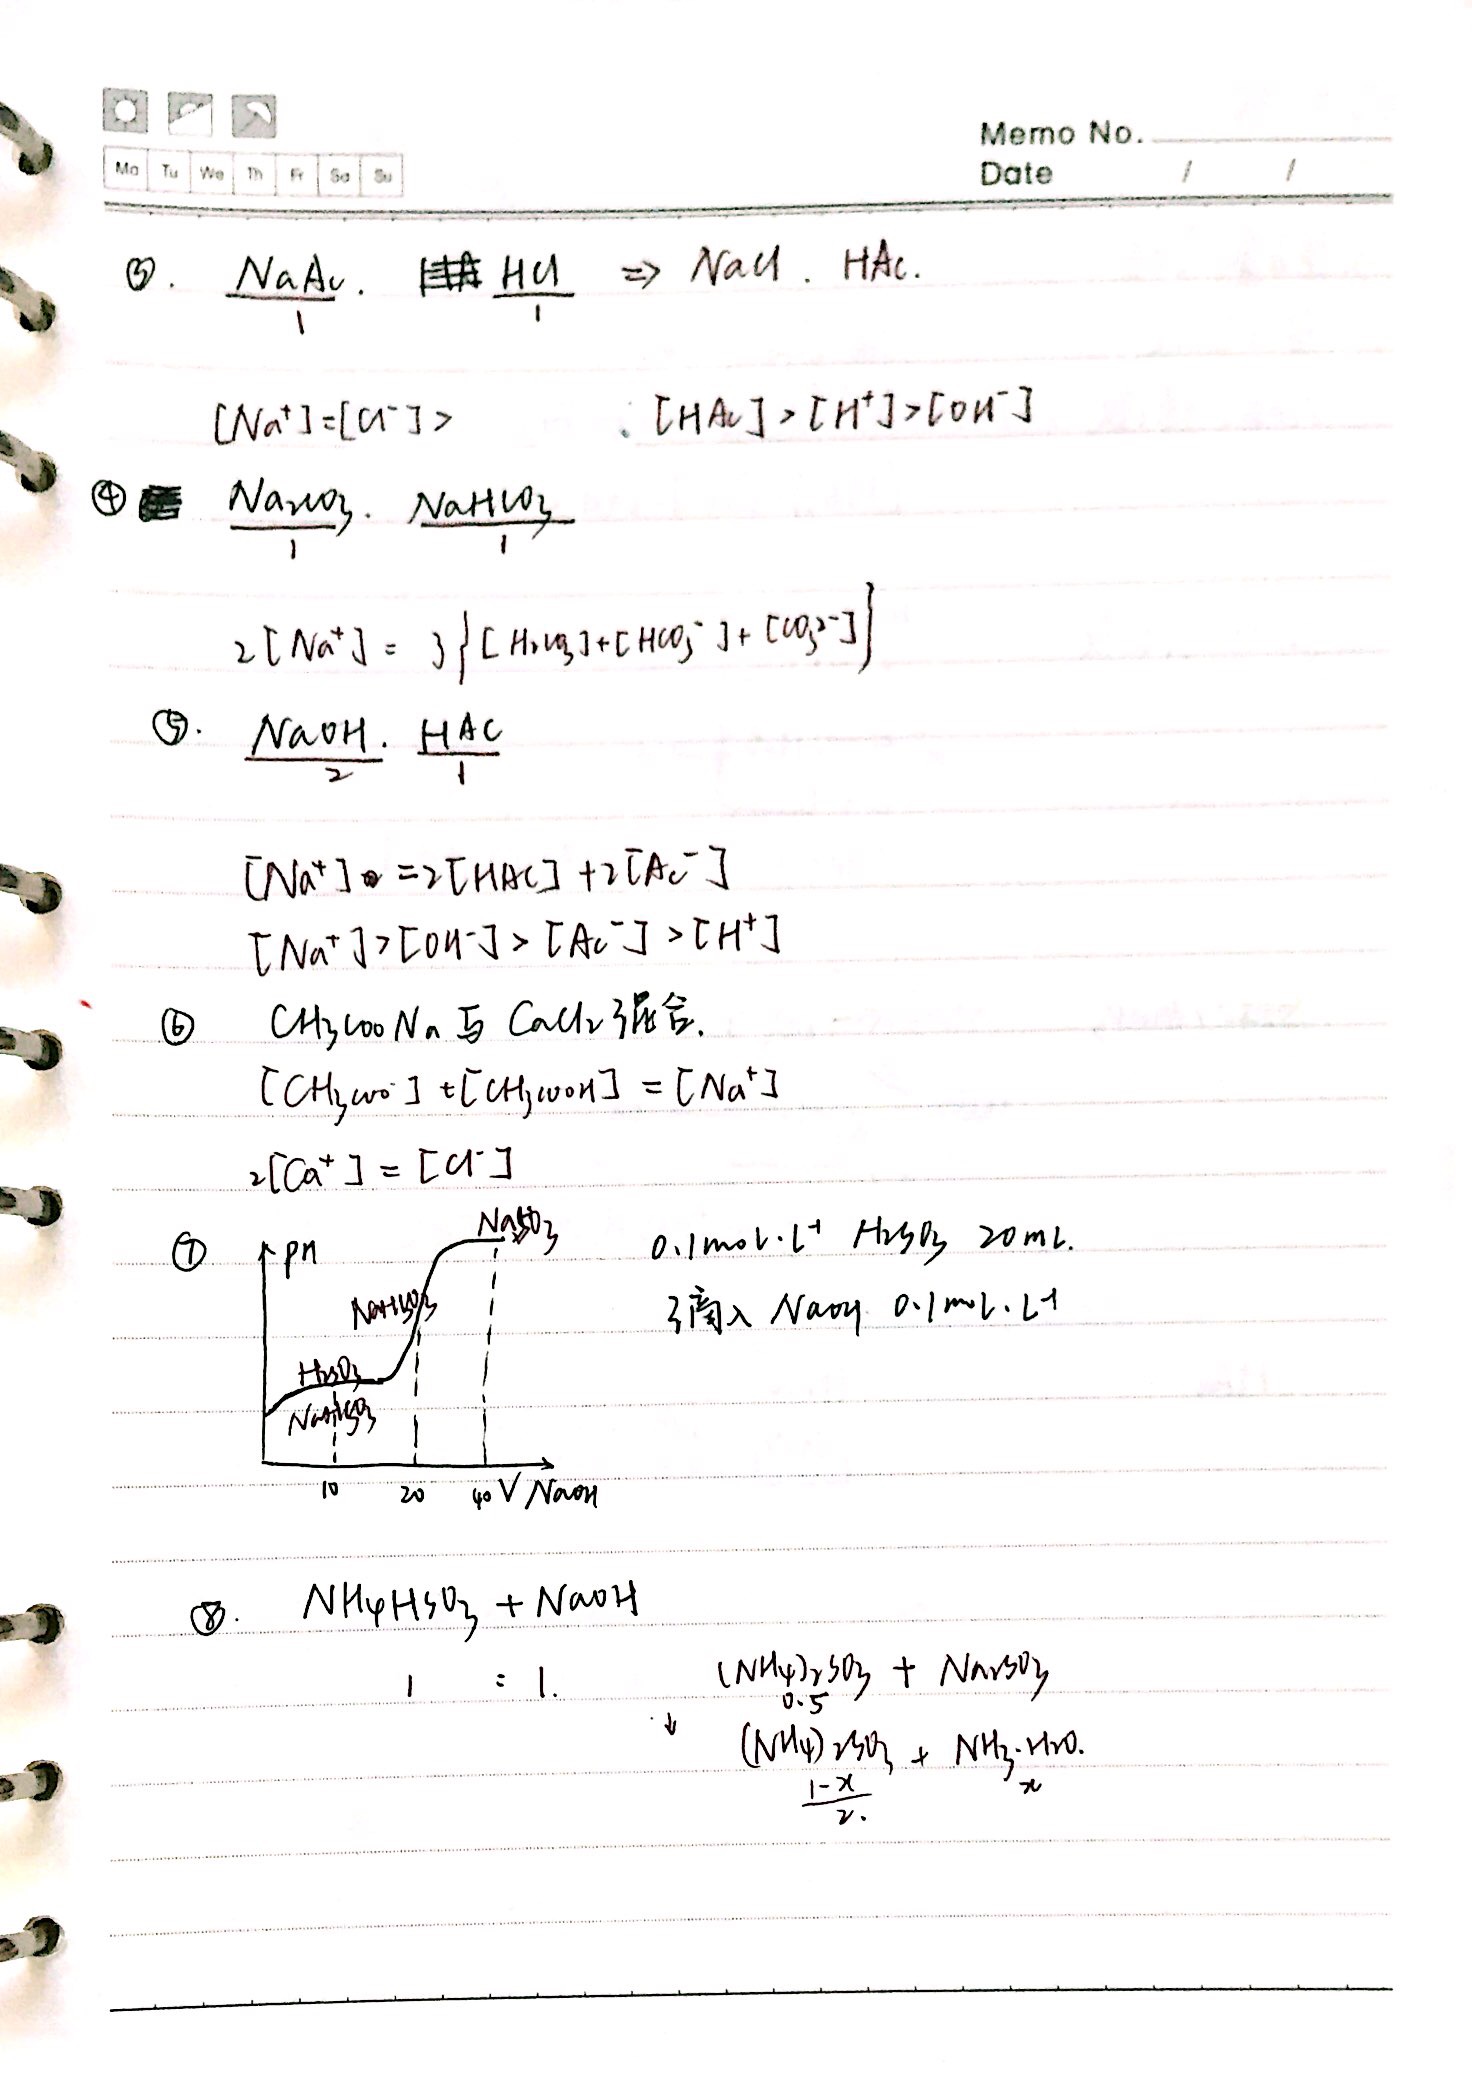 Memo No.
Mo Tu We Th Fr Sa Su
Date / /
③. NaAc. HCl => NaCl . HAc.
1 1
[Na⁺]=[Cl⁻]> [HAc]>[H⁺]>[OH⁻]
④ Na₂CO₃. NaHCO₃
1 1
2[Na⁺] = 3{[H₂CO₃]+[HCO₃⁻]+[CO₃²⁻]}
⑤. NaOH. HAC
2 1
[Na⁺] =2[HAC]+2[Ac⁻]
[Na⁺]>[OH⁻]>[Ac⁻]>[H⁺]
⑥ CH₃COONa与CaCl₂混合.
[CH₃COO⁻]+[CH₃COOH]=[Na⁺]
2[Ca⁺]=[Cl⁻]
⑦ pH 0.1mol·L⁻¹ H₂SO₃ 20mL.
NaHSO₃ 滴入 NaOH 0.1mol·L⁻¹
H₂SO₃
NaHSO₃
10 20 40 V NaOH
⑧. NH₄HSO₃ + NaOH
1 : 1. (NH₄)₂SO₃ + Na₂SO₃
0.5
↓ (NH₄)₂SO₃ + NH₃·H₂O.
1-x x
2.